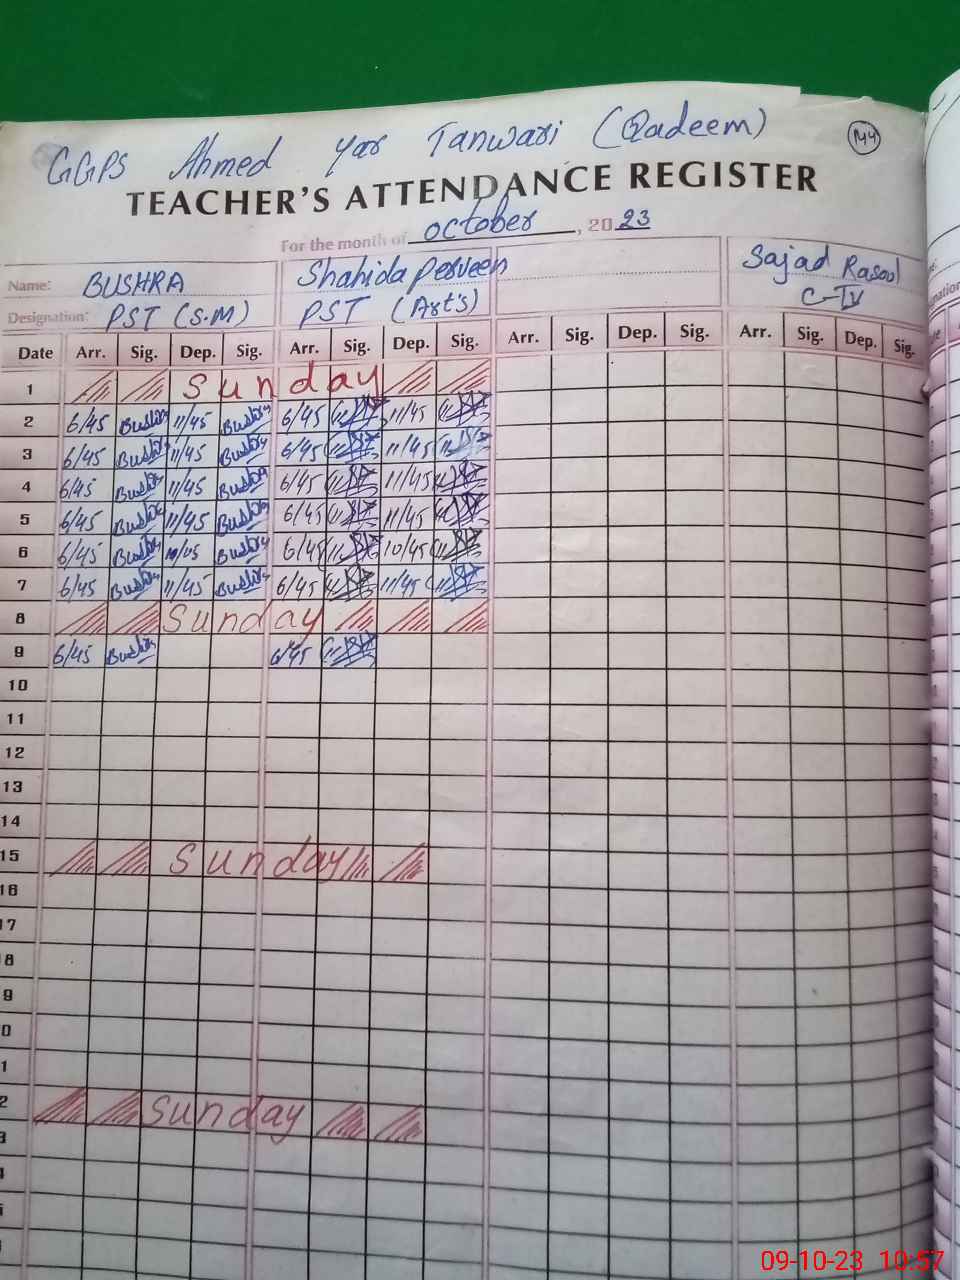 GGPS Ahmed Yar Tanwari (Qadeem) 144
TEACHER'S ATTENDANCE REGISTER
For the month of October, 2023
Name: BUSHRA Shahida Perveen Sajad Rasool
Designation: PST (S.M) PST (Arts) C-IV
Date Arr. Sig. Dep. Sig. Arr. Sig. Dep. Sig. Arr. Sig. Dep. Sig. Arr. Sig. Dep. Sig.
1 Sunday
2 6/45 Bushra 11/45 Bushra 6/45 11/45
3 6/45 Bushra 11/45 Bushra 6/45 11/45
4 6/45 Bushra 11/45 Bushra 6/45 11/45
5 6/45 Bushra 11/45 Bushra 6/45 11/45
6 6/45 Bushra Bushra 6/45 10/45
7 6/45 Bushra 11/45 Bushra 6/45 11/45
8 Sunday
9 6/45 Bushra 6/45
10
11
12
13
14
15 Sunday
16
17
8
9
0
1
2 Sunday
3
09-10-23 10:57